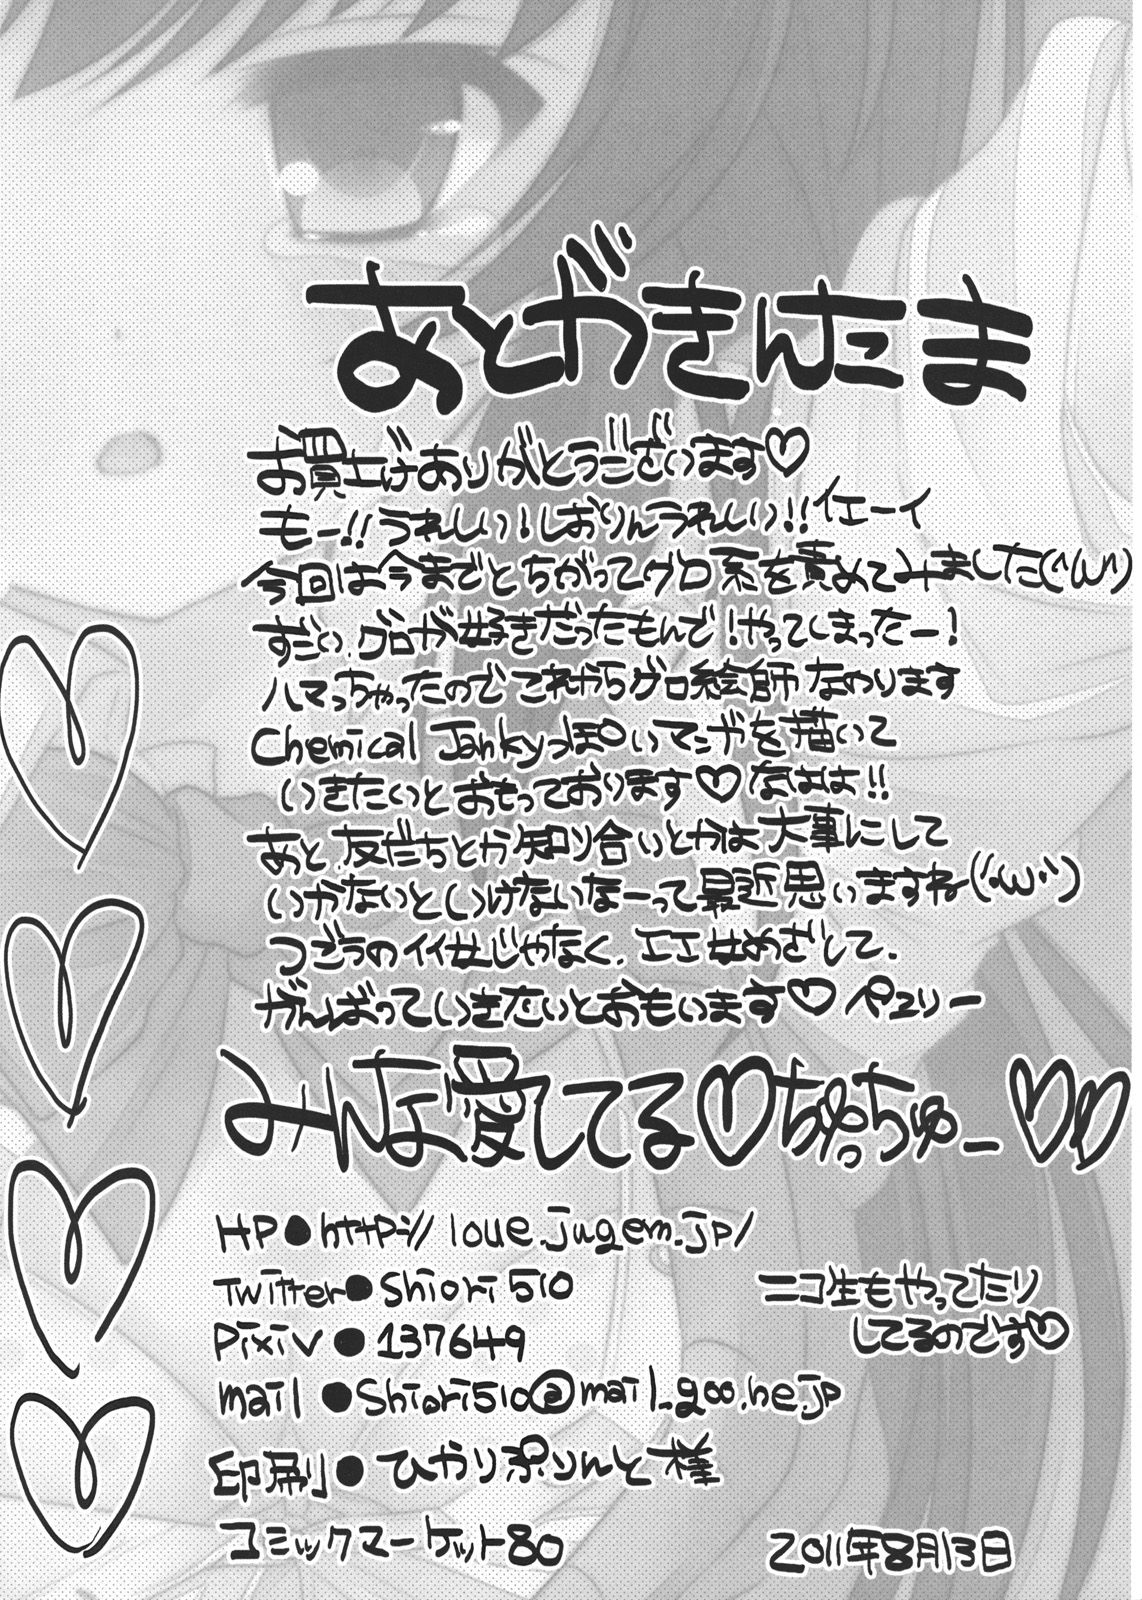 あとがきんたま
お買上げありがとうございます♡
もー!!うれしい!しおりんうれしい!!イエーイ
今回は今までとちがってグロ系を責めてみました(´・ω・`)
ずだい、グロが好きだったもんで!やってしまったー!
ハマっちゃったのでこれからグロ絵師なのります
Chemical Jankyっぽいマンガを描いて
いきたいとおもっております♡なはは!!
あと、友だちとか知り合いとかは大事にして
いかないといけないなーって最近思いますね(´・ω・`)
つごうのイイ女じゃなく、エエ女めざして、
がんばっていきたいとおもいます♡ペュリー
みんな愛してる♡ちゅっちゅー♡♡
HP●http://loue.jugem.jp/
Twitter●Shiori510
Pixiv●137649
mail●Shiori510@mail.goo.ne.jp
ニコ生もやってたり
してるのです♡
印刷●ひかりぷりんと様
コミックマーケット80
2011年8月13日